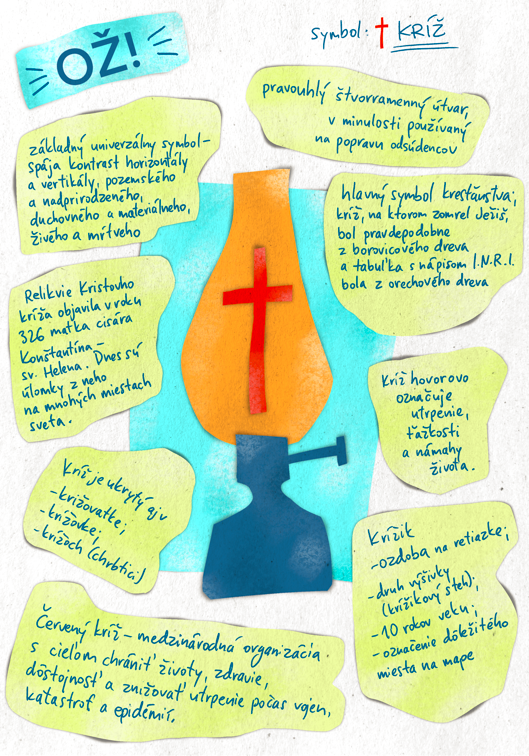 OŽ!
symbol: KRÍŽ
pravouhlý štvorramenný útvar,
v minulosti používaný
na popravu odsúdencov
základný univerzálny symbol –
spája kontrast horizontály
a vertikály, pozemského
a nadprirodzeného,
duchovného a materiálneho,
živého a mŕtveho
hlavný symbol kresťanstva;
kríž, na ktorom zomrel Ježiš,
bol pravdepodobne
z borovicového dreva
a tabuľka s nápisom I.N.R.I.
bola z orechového dreva
Relikvie Kristovho
kríža objavila v roku
326 matka cisára
Konštantína –
sv. Helena. Dnes sú
úlomky z neho
na mnohých miestach
sveta.
Kríž hovorovo
označuje
utrpenie,
ťažkosti
a námahy
života.
Kríž je ukrytý aj v
- križovatke;
- krížovke;
- krížoch (chrbtici)
Krížik
- ozdoba na retiazke;
- druh výšivky
(krížikový steh);
- 10 rokov veku;
- označenie dôležitého
miesta na mape
Červený kríž – medzinárodná organizácia
s cieľom chrániť životy, zdravie,
dôstojnosť a znižovať utrpenie počas vojen,
katastrof a epidémií.